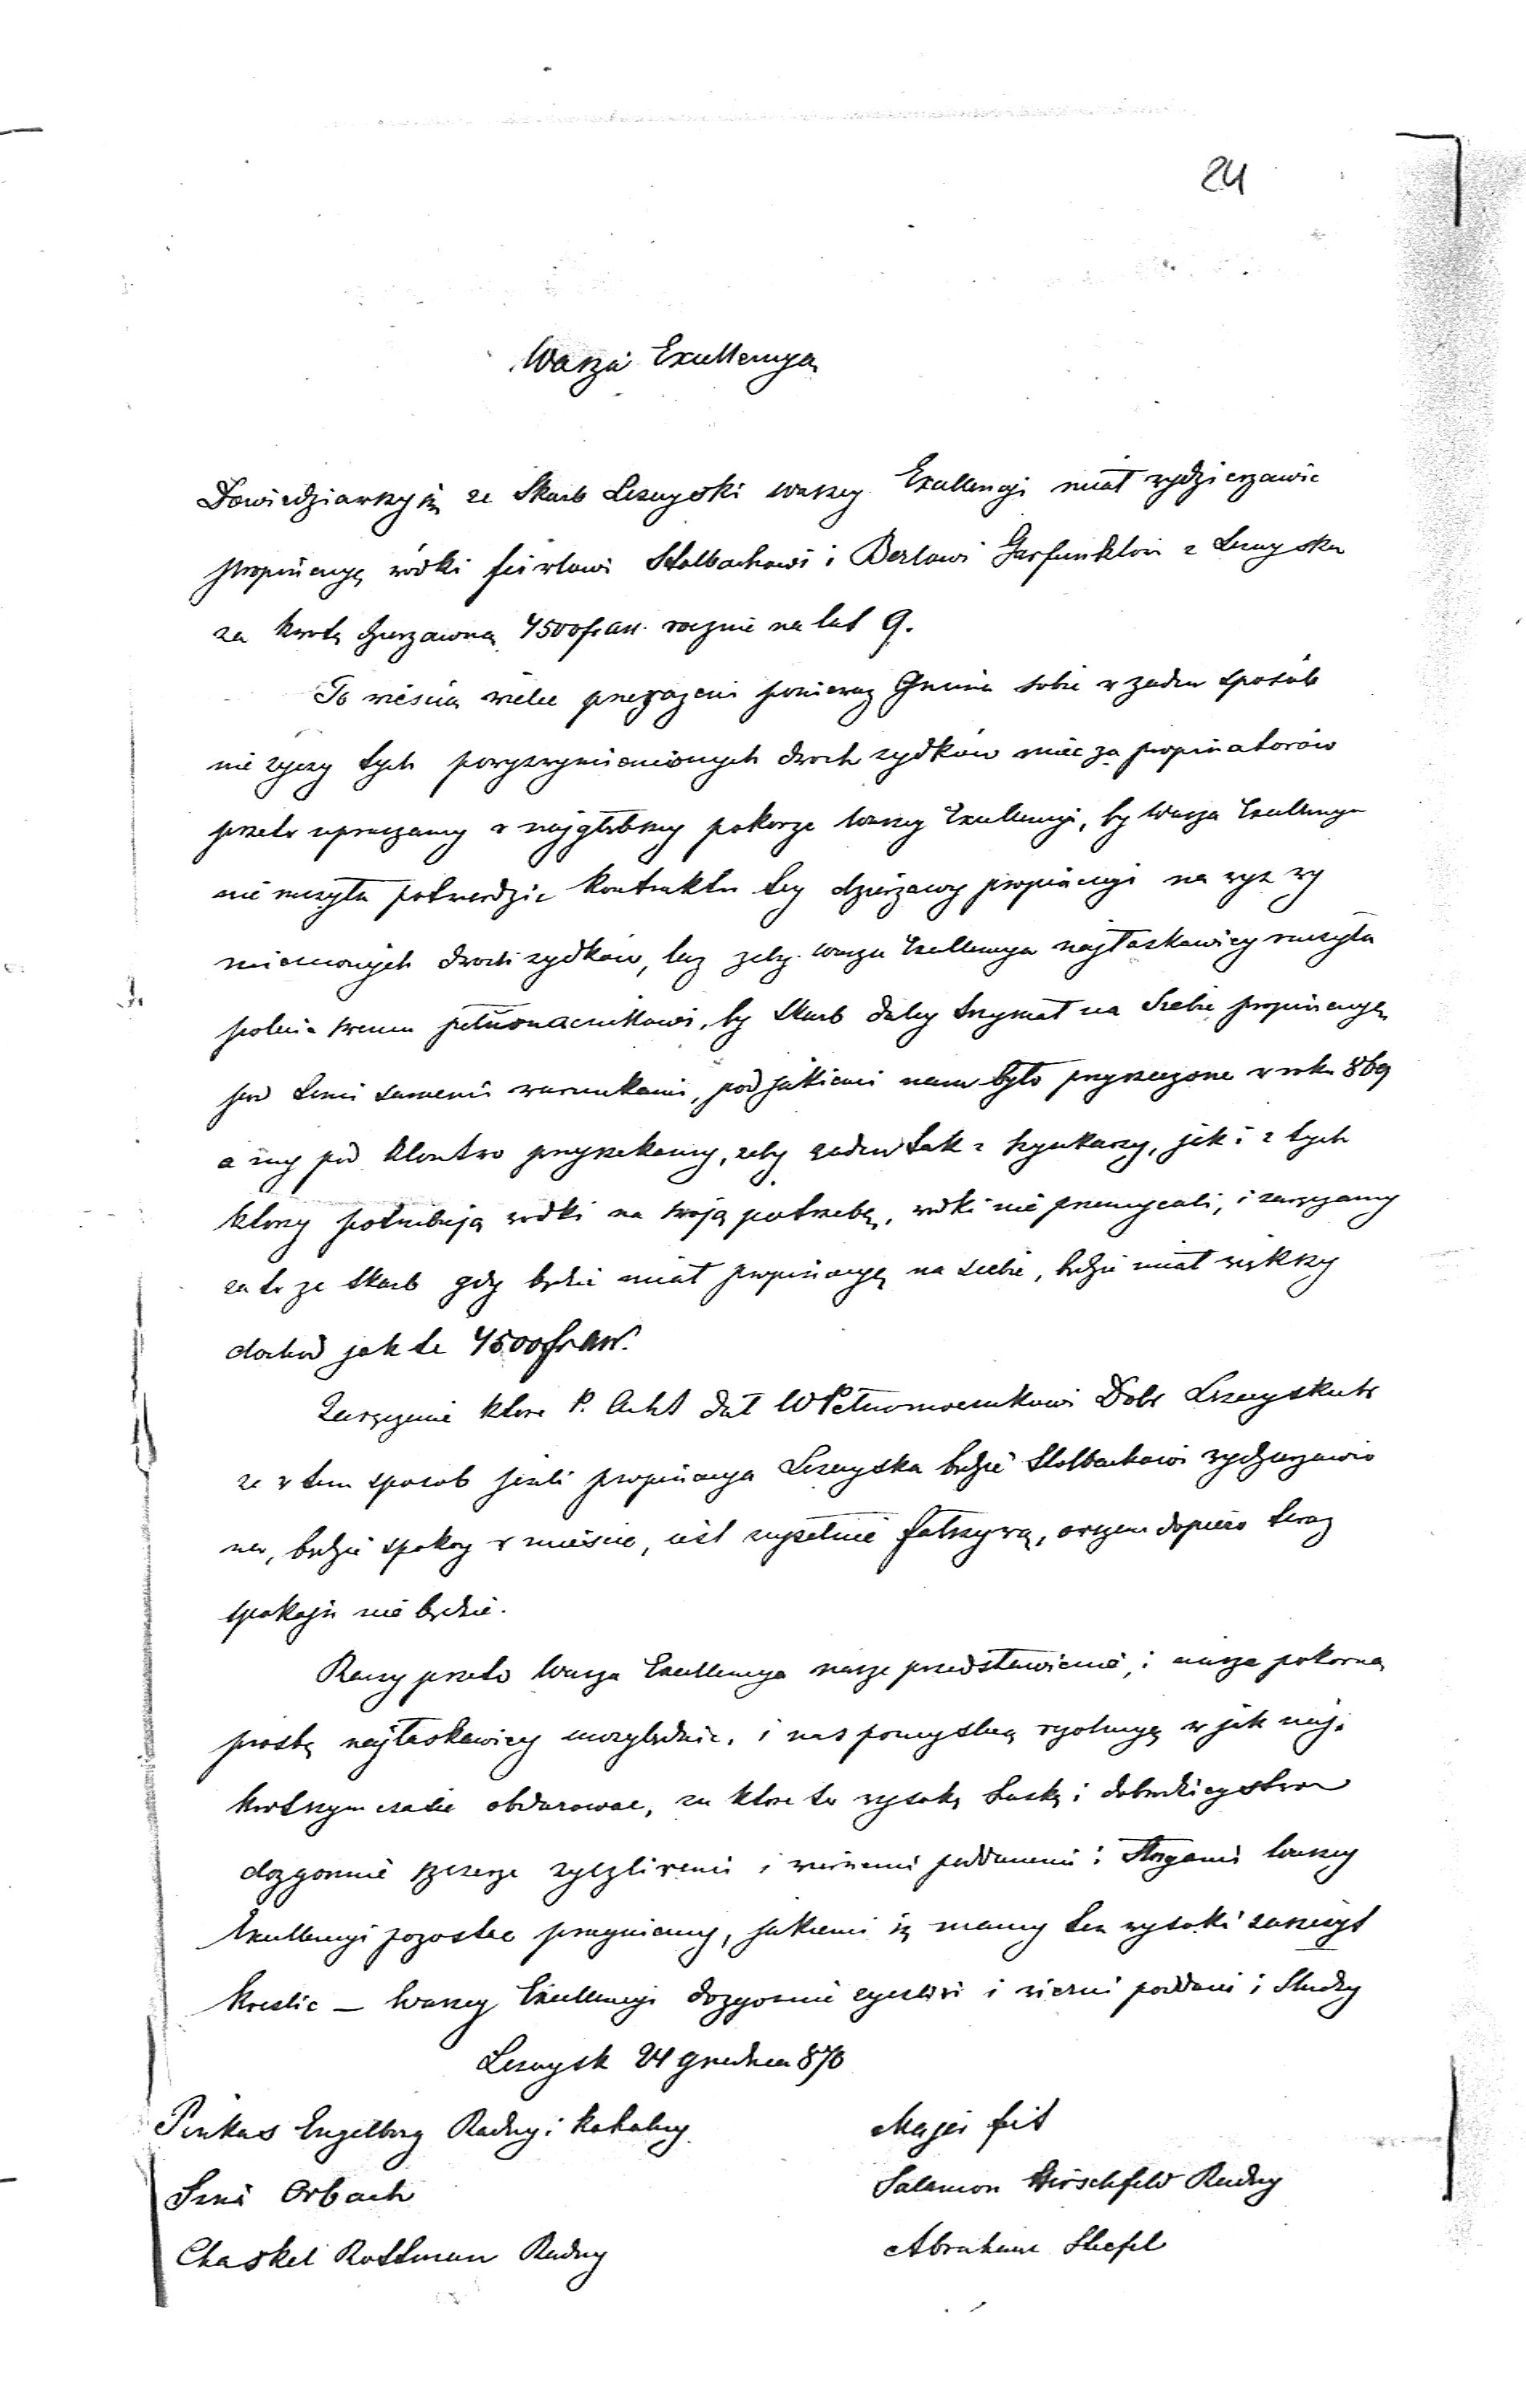 24
Wasza Excellencya
Dowiedziawszy się ze Skarb Leżayski waszey Excellencyi miał wydzierzawic
propinacyę wódki Stolbachowi i Berlowi Garfunklowi z Leżayska
za kwotę dzierzawną 4500fr aw. rocznie na lat 9.
Tą wieścią wielce przerazeni poniewaz Gmina sobie w zaden sposób
nie zyczy tych powyzwymienionych dwoch zydków miec za propinatorów
przeto upraszamy w najgłebszy pokorze waszey Excellencyi, by Wasza Excellencya
nie raczyła potwierdzic kontraktu tey dzierzawy propinacyi na wyz wy
mienionych dwoch zydków, lecz zeby wasza Excellencya najłaskawiey raczyła
polecic swemu pełnomocnikowi, by Skarb daley trzymał na Siebie propinacyę,
pod temi samemi warunkami, pod jakiemi nam było przyrzeczone w roku 869
a my pod klontwo przyrzekamy, zeby zaden tak z szynkarzy, jak i z tych
ktorzy potrzebują wodki na swoją potrzebę, wodki nie przemycali, i zaręczamy
za to ze Skarb gdy będzie miał propinacyę na siebie, będzie miał większy
dochod jak te 4500fr aw.
Zaręczenie ktore P. dał WPełnomocnikowi Dobr Leżayska
ze w tem sposob jezeli propinacya Leżayska będzie Stolbachowi wydzierzawio
na, będzie spokoy w miescie, jest zupełnie fałszywą, owszem dopiero teraz
spokoju nie będzie.
Raczy przeto Wasza Excellencya nasze przedstawienie, i nasza pokorną
prosbę najłaskawiey uwzględnic, i nas pomyslną rezolucyę w jak naj-
krotszym czasie obdarowac, za ktore to wysoką łaskę i dobrodzieystwo
dozgonnie szczerze zyczliwemi i wiernemi poddanemi i Sługami waszey
Excellencyi pozostac pragniemy, jakiemi się mamy ten wysoki zaszczyt
kreslic – Waszey Excellencyi dozgonnie zyczliwi i wierni poddani i Słudzy
Leżaysk 24 grudnia 870
Pinkas Engelberg Radny i kahalny
Majer
Orbach
Salamon Hirschfeld Radny
Chaskel Rottman Radny
Abraham Stiefel